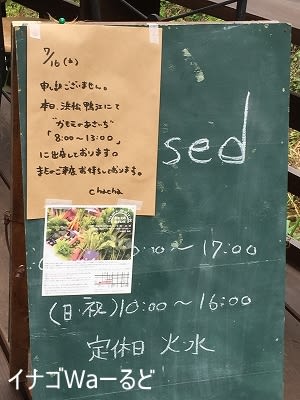 7/16(土)
申し訳ございません。
本日、浜松 鴨江にて
"かもえのあさいち"
「8:00~13:00」
に出店しております。
またのご来店お待ちしております。
chacha
sed
:00~17:00
(日・祝)10:00~16:00
定休日 火 水
イナゴWaーるど